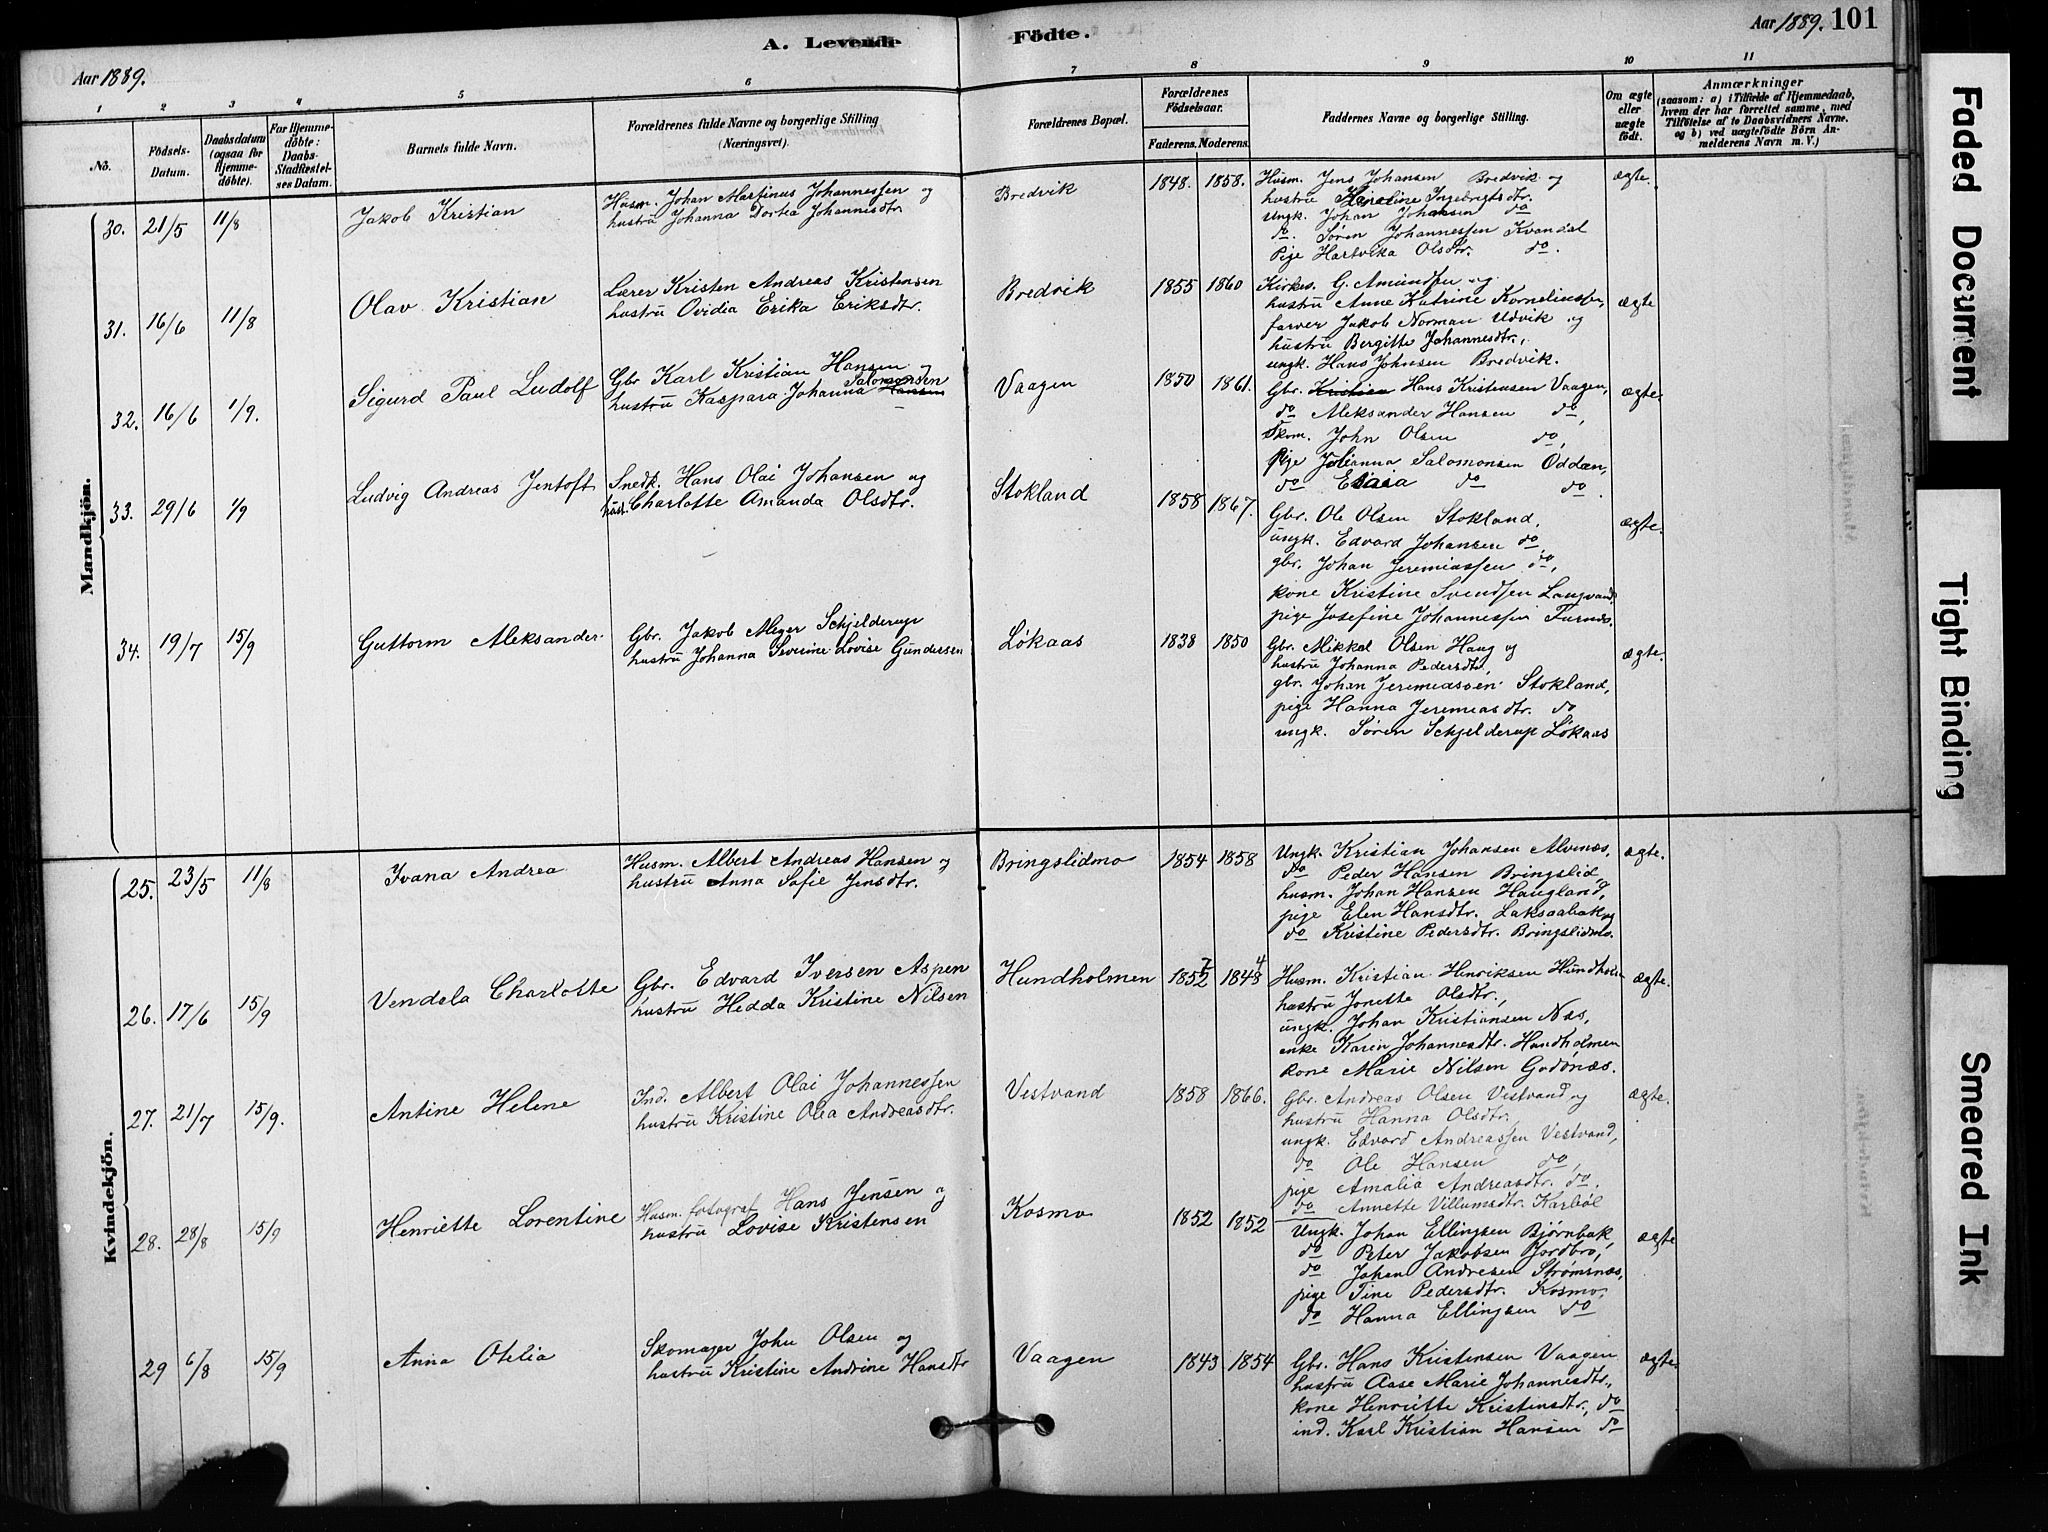 A. Levende Födte.
Aar 1889.
Aar 1889. 101
1 2 3 4 5 6 7 8 9 10 11
No.
Födsels-Datum.
Daabsdatum (ogsaa for Hjemmedöbte).
For Hjemmedöbte: Daabs-Stadfæstelses Datum.
Barnets fulde Navn.
Forældrenes fulde Navne og borgerlige Stilling (Næringsvei).
Forældrenes Bopæl.
Forældrenes Födselsaar.
Faderens. Moderens.
Faddernes Navne og borgerlige Stilling.
Om ægte eller uægte födt.
Anmærkninger
(saasom: a) i Tilfælde af Hjemmedaab, hvem der har forrettet samme, med Tilföielse af to Daabsvidners Navne. og b) ved uægtefödte Börn Anmelderens Navn m. V.)
Mandkjön.
30. 21/5 11/8 Jakob Kristian
Husm. Johan Martinus Johannessen og
hustru Johanna Dortea Johannisdtr.
Bredvik 1848. 1858.
Husm. Jens Johansen Bredvik og
hustru Ingebrigtsdtr.
Ungk. Johan Johansen do
do. Søren Johannessen Kvandal
Pige Hartvika Olsdtr. do.
ægte.
31. 16/6 11/8 Olav Kristian
Lærer Kristen Andreas Kristensen
hustru Ovidia Erika Eriksdtr.
Bredvik 1855 1860
Kirkes. G. Amundsen og
hustru Anne Katrine Korneliussen,
farver Jakob Norman Udvik og
hustru Bergitte Johannesdtr.,
ungk. Hans Johnsen Bredvik.
ægte
32. 16/6 1/9. Sigurd Paul Ludolf
Gbr Karl Kristian Hansen og
hustru Kaspara Johanna Hansen Salomonsen
Vaagen 1850 1861.
Gbr. Kristian Hans Kristensen Vaagen,
do Aleksander Hansen do,
Skom. John Olsen do,
Pige Julianna Salomonsen Oddæn,
do Elisa do do.
ægte.
33. 29/6 1/9 Ludvig Andreas Jentoft
Snedk. Hans Olai Johansen og
hust. Charlotte Amanda Olsdtr.
Stokland 1858 1867.
Gbr. Ole Olsen Stokland,
ungk. Edvard Johansen do,
gbr. Johan Jeremiassen do,
kone Kristine Svendsen Langvand,
pige Josefine Johannessen Furnes.
ægte.
34. 19/7 15/9 Guttorm Aleksander
Gbr. Jakob Meyer Schjelderup
hustru Johanna Severine Lovise Gundersen
Løkaas 1838 1850
Gbr. Mikkel Olsen Haug og
hustru Johanna Pedersdtr,
gbr. Johan Jeremiasen Stokland,
pige Hanna Jeremiasdtr. do
ungk. Søren Schjelderup Løkaas
ægte.
Kvindekjön.
25. 23/5 11/8 Ivana Andrea
Husm. Albert Andreas Hansen og
hustru Anna Sofie Jensdtr.
Bringslidmo 1854 1858
Ungk. Kristian Johansen Alvenæs,
do Peder Hansen Bringslid,
husm. Johan Hansen Haugland,
pige Elen Hansdtr. Laksaabak og
do Kristine Pedersdtr. Bringslidmo.
ægte.
26. 17/6 15/9 Vendela Charlotte
Gbr. Edvard Iversen Aspen
hustru Hedda Kristine Nilsen
Hundholmen 1852 7 1848 4
Husm. Kristian Henriksen Hundholm
hustru Jonette Olsdtr.,
ungk. Johan Kristiansen Næs,
enke Karen Johannesdtr. Hundholmen
kone Marie Nilsen Godønæs.
ægte.
27. 21/7 15/9. Antine Helene
Ind. Albert Olai Johannessen
hustru Kristine Olea Andreasdtr.
Vestvand 1858 1866.
Gbr. Andreas Olsen Vestvand og
hustru Hanna Olsdtr.,
ungk. Edvard Andreassen Vestvand,
do Ole Hansen do,
pige Amalia Andreasdtr. do.
do Annette Villumsdtr. Karbøl
ægte.
28. 28/8 15/9 Henriette Lorentine
Husm. fotograf Hans Jensen og
hustru Lovise Kristensen
Kosmo 1852 1852
Ungk. Johan Ellingsen Bjørnbak,
do Peter Jakobsen Jordbro,
do Johan Andresen Strømsnæs,
pige Tine Pedersdtr. Kosmo,
do Hanna Ellingsen do
ægte
29 6/8 15/9 Anna Otelia
Skomager John Olsen og
hustru Kristine Andrine Hansdtr
Vaagen 1843 1854
Gbr. Hans Kristensen Vaagen
hustru Aase Marie Johannesdtr.,
kone Henriette Kristensdtr., do
ind. Karl Kristian Hansen do
ægte.
Faded Document
Tight Binding
Smeared Ink